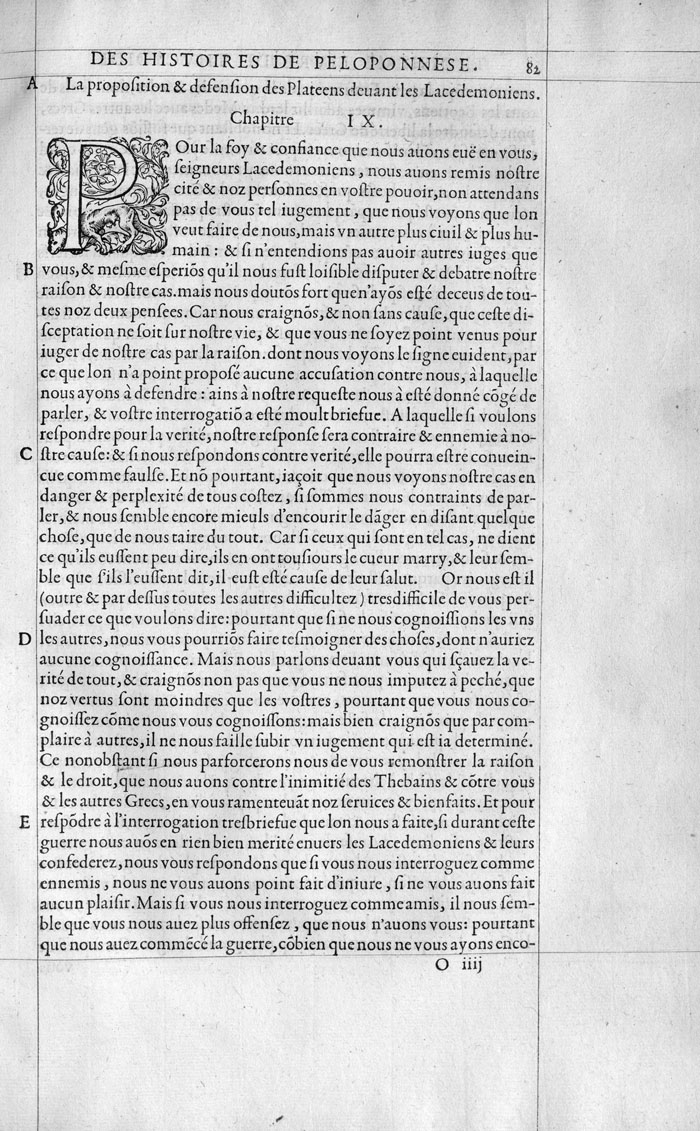 DES HISTOIRES DE PELOPONNESE. 82
A La propoſition & defenſion des Plateens deuant les Lacedemoniens.
Chapitre IX.
POur la foy & confiance que nous auons euë en vous,
ſeigneurs Lacedemoniens, nous auons remis noſtre
cité & noz perſonnes en voſtre pouoir, non attendans
pas de vous tel iugement, que nous voyons que lon
veut faire de nous, mais vn autre plus ciuil & plus hu-
main : & ſi n'entendions pas auoir autres iuges que
B vous, & meſme eſperiõs qu'il nous fuſt loiſible diſputer & debatre noſtre
raiſon & noſtre cas. mais nous doutõs fort quen'ayõs eſté deceus de tou-
tes noz deux penſees. Car nous craignõs, & non ſans cauſe, que ceſte di-
ſceptation ne ſoit ſur noſtre vie, & que vous ne ſoyez point venus pour
iuger de noſtre cas par la raiſon. dont nous voyons le ſigne euident, par
ce que lon n'a point propoſé aucune accuſation contre nous, à laquelle
nous ayons à defendre : ains à noſtre requeſte nous à eſté donné cõgé de
parler, & voſtre interrogatiõ a eſté moult briefue. A laquelle ſi voulons
reſpondre pour la verité, noſtre reſponſe ſera contraire & ennemie à no-
C ſtre cauſe: & ſi nous reſpondons contre verité, elle pourra eſtre conuein-
cue comme faulſe. Et nõ pourtant, iaçoit que nous voyons noſtre cas en
danger & perplexité de tous coſtez, ſi ſommes nous contraints de par-
ler, & nous ſemble encore mieuls d'encourir le dãger en diſant quelque
choſe, que de nous taire du tout. Car ſi ceux qui ſont en tel cas, ne dient
ce qu'ils euſſent peu dire, ils en ont touſiours le cueur marry, & leur ſem-
ble que ſ'ils l'euſſent dit, il euſt eſté cauſe de leur ſalut. Or nous eſt il
(outre & par deſſus toutes les autres difficultez) tresdifficile de vous per-
ſuader ce que voulons dire: pourtant que ſi ne nous cognoiſſions les vns
D les autres, nous vous pourriõs faire teſmoigner des choſes, dont n'auriez
aucune cognoiſſance. Mais nous parlons deuant vous qui ſçauez la ve-
rité de tout, & craignõs non pas que vous ne nous imputez à peché, que
noz vertus ſont moindres que les voſtres, pourtant que vous nous co-
gnoiſſez cõme nous vous cognoiſſons: mais bien craignõs que par com-
plaire à autres, il ne nous faille ſubir vn iugement qui eſt ia determiné.
Ce nonobſtant ſi nous parforcerons nous de vous remonſtrer la raiſon
& le droit, que nous auons contre l'inimitié des Thebains & cõtre vous
& les autres Grecs, en vous ramenteuãt noz ſeruices & bienfaits. Et pour
E reſpõdre à l'interrogation tresbriefue que lon nous a faite, ſi durant ceſte
guerre nous auõs en rien bien merité enuers les Lacedemoniens & leurs
confederez, nous vous reſpondons que ſi vous nous interroguez comme
ennemis, nous ne vous auons point fait d'iniure, ſi ne vous auons fait
aucun plaiſir. Mais ſi vous nous interroguez comme amis, il nous ſem-
ble que vous nous auez plus offenſez, que nous n'auons vous: pourtant
que nous auez commẽcé la guerre, cõbien que nous ne vous ayons enco-
O iiij